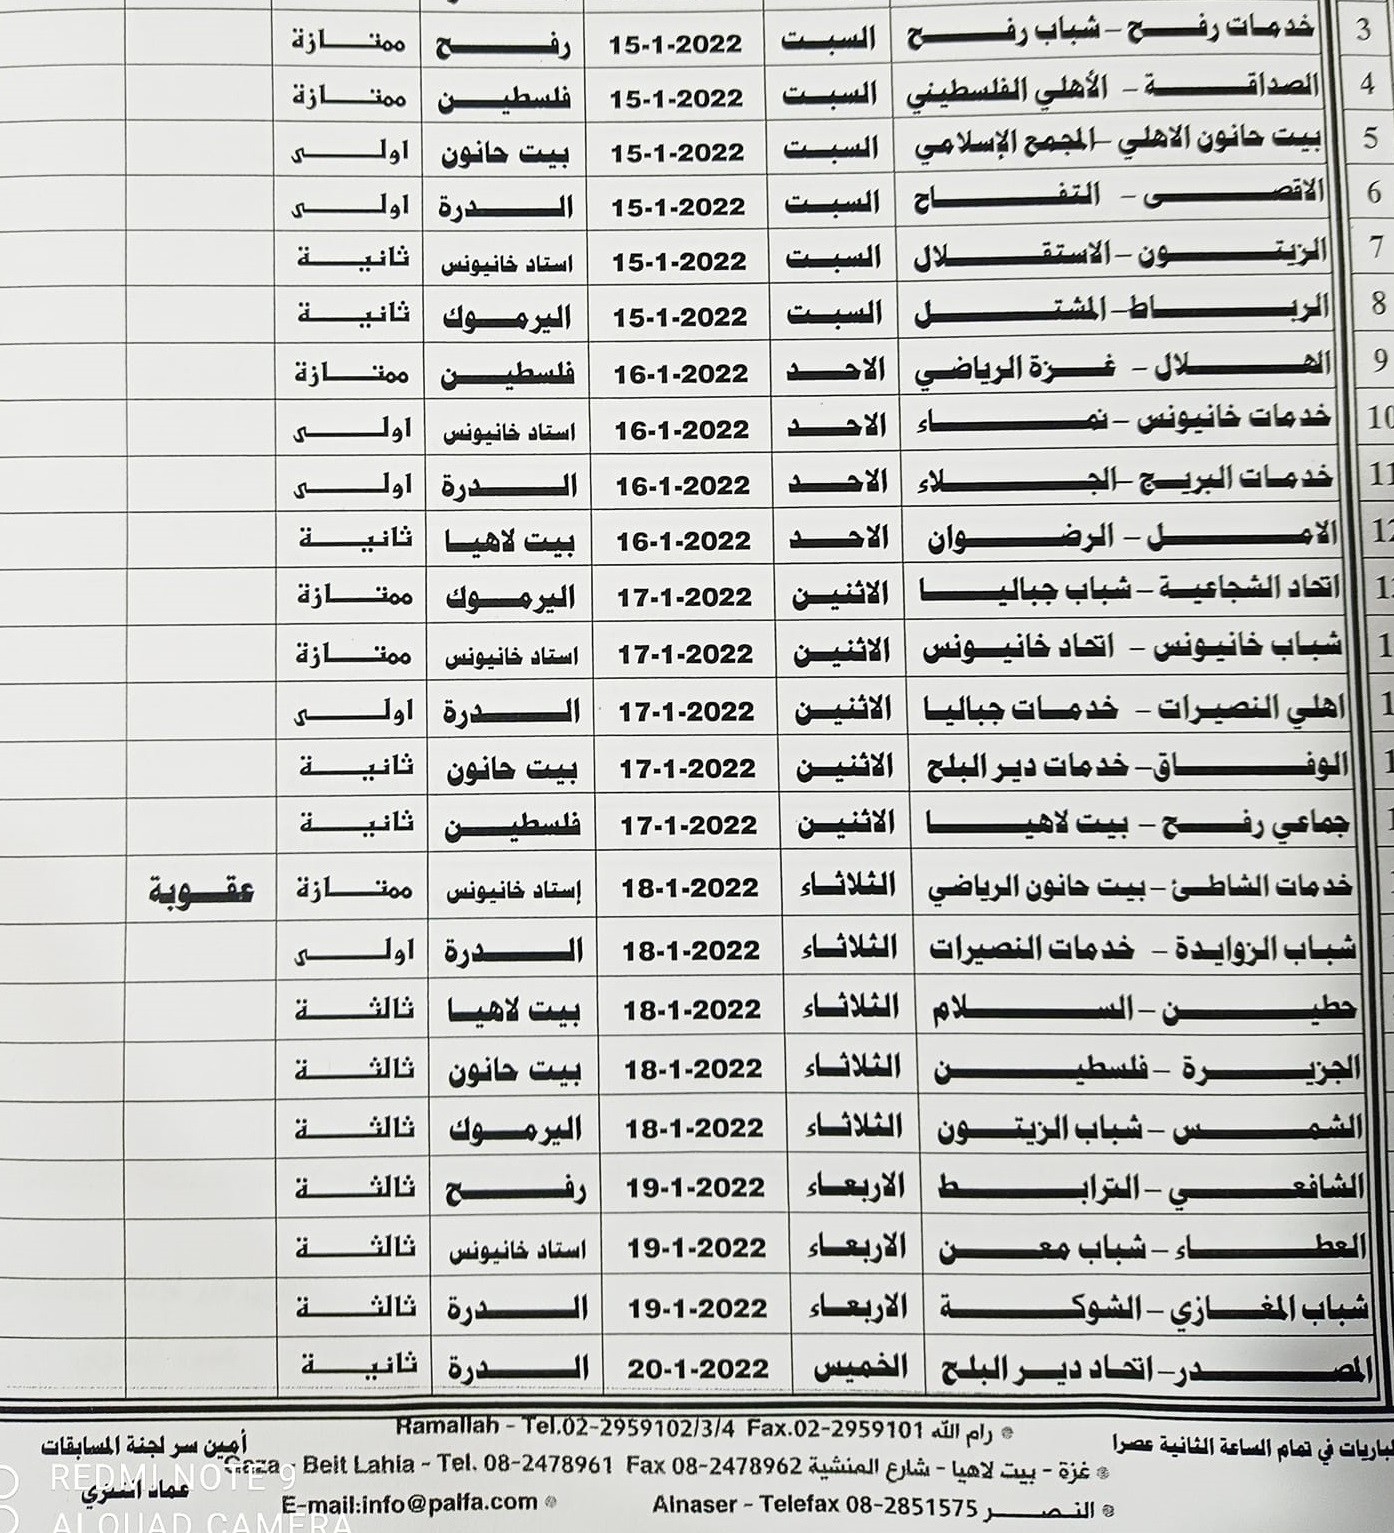 3 خدمات رفح – شباب رفح السبت 15-1-2022 رفح ممتازة
4 الصداقة – الأهلي الفلسطيني السبت 15-1-2022 فلسطين ممتازة
5 بيت حانون الاهلي –المجمع الإسلامي السبت 15-1-2022 بيت حانون اولى
6 الاقصى – التفاح السبت 15-1-2022 الدرة اولى
7 الزيتون –الاستقلال السبت 15-1-2022 استاد خانيونس ثانية
8 الرباط–المشتل السبت 15-1-2022 اليرموك ثانية
9 الهلال – غزة الرياضي الاحد 16-1-2022 فلسطين ممتازة
10 خدمات خانيونس –نماء الاحد 16-1-2022 استاد خانيونس اولى
11 خدمات البريج –الجلاء الاحد 16-1-2022 الدرة اولى
12 الامل – الرضوان الاحد 16-1-2022 بيت لاهيا ثانية
1 اتحاد الشجاعية – شباب جباليا الاثنين 17-1-2022 اليرموك ممتازة
1 شباب خانيونس – اتحاد خانيونس الاثنين 17-1-2022 استاد خانيونس ممتازة
1 اهلي النصيرات – خدمات جباليا الاثنين 17-1-2022 الدرة اولى
1 الوفاق– خدمات دير البلح الاثنين 17-1-2022 بيت حانون ثانية
1 جماعي رفح – بيت لاهيا الاثنين 17-1-2022 فلسطين ثانية
خدمات الشاطئ – بيت حانون الرياضي الثلاثاء 18-1-2022 إستاد خانيونس ممتازة عقوبة
شباب الزوايدة – خدمات النصيرات الثلاثاء 18-1-2022 الدرة اولى
حطين – السلام الثلاثاء 18-1-2022 بيت لاهيا ثالثة
الجزيرة – فلسطين الثلاثاء 18-1-2022 بيت حانون ثالثة
الشمس – شباب الزيتون الثلاثاء 18-1-2022 اليرموك ثالثة
الشافعي – الترابط الاربعاء 19-1-2022 رفح ثالثة
العطاء – شباب معن الاربعاء 19-1-2022 استاد خانيونس ثالثة
شباب المغازي – الشوكة الاربعاء 19-1-2022 الدرة ثالثة
المصدر– اتحاد دير البلح الخميس 20-1-2022 الدرة ثانية
في تمام الساعة الثانية عصرا
رام الله Ramallah - Tel.02-2959102/3/4 Fax.02-2959101
غزة - بيت لاهيا - شارع المنشية Gaza - Beit Lahia - Tel. 08-2478961 Fax 08-2478962
النصر Alnaser - Telefax 08-2851575
E-mail:info@palfa.com
أمين سر لجنة المسابقات
عماد
REDMI NOTE 9
AI QUAD CAMERA